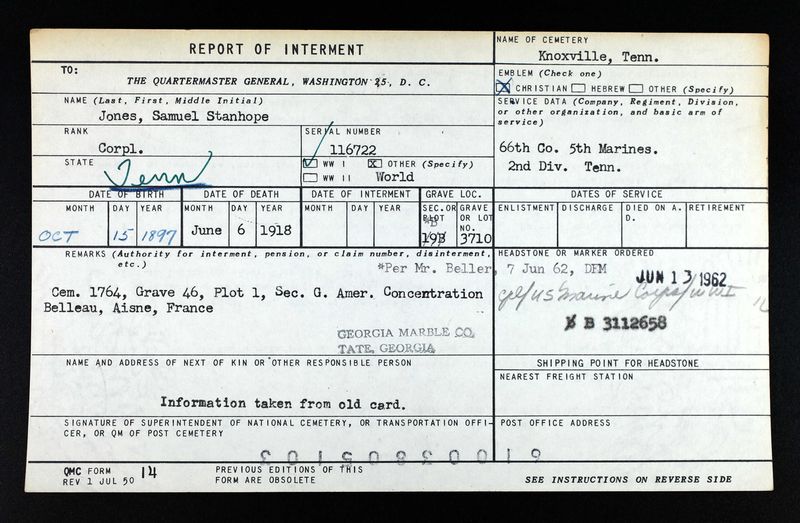 REPORT OF INTERMENT
TO:
THE QUARTERMASTER GENERAL, WASHINGTON 25, D. C.
NAME OF CEMETERY
Knoxville, Tenn.
EMBLEM (Check one)
X CHRISTIAN HEBREW OTHER (Specify)
NAME (Last, First, Middle Initial)
Jones, Samuel Stanhope
SERVICE DATA (Company, Regiment, Division, or other organization, and basic arm of service)
66th Co. 5th Marines.
2nd Div. Tenn.
RANK
Corpl.
SERIAL NUMBER
116722
STATE
Tenn
WW I X OTHER (Specify)
WW II World
DATE OF BIRTH DATE OF DEATH DATE OF INTERMENT GRAVE LOC. DATES OF SERVICE
MONTH DAY YEAR MONTH DAY YEAR MONTH DAY YEAR SEC.OR PLOT GRAVE OR LOT NO. ENLISTMENT DISCHARGE DIED ON A. D. RETIREMENT
*B
OCT 15 1897 June 6 1918 19B 3710
REMARKS (Authority for interment, pension, or claim number, disinterment, etc.)
*Per Mr. Beller, 7 Jun 62, DFM
Cem. 1764, Grave 46, Plot 1, Sec. G. Amer. Concentration
Belleau, Aisne, France
GEORGIA MARBLE CO.
TATE, GEORGIA
HEADSTONE OR MARKER ORDERED
JUN 13 1962
Cpl/US Marine Corps/WWI
B 3112658
NAME AND ADDRESS OF NEXT OF KIN OR OTHER RESPONSIBLE PERSON
Information taken from old card.
SHIPPING POINT FOR HEADSTONE
NEAREST FREIGHT STATION
SIGNATURE OF SUPERINTENDENT OF NATIONAL CEMETERY, OR TRANSPORTATION OFFI-
CER, OR QM OF POST CEMETERY
POST OFFICE ADDRESS
QMC FORM 14
REV 1 JUL 50
PREVIOUS EDITIONS OF THIS
FORM ARE OBSOLETE
SEE INSTRUCTIONS ON REVERSE SIDE